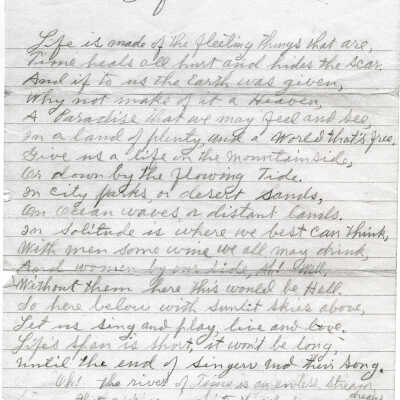 Life is made of the fleeting things that are,
Time heals all hurt and hides the scar.
And if to us the Earth was given,
Why not make of it a Heaven,
A Paradise that we may feel and see
In a land of plenty and a World that's free,
Give us a life in the Mountainside,
Or down by the flowing Tide.
In city parks, or desert sands,
On Ocean waves or distant lands.
In Solitude is where we best can think,
With men some wine we all may drink,
And women by our side, Ah! Well,
Without them here this would be Hell.
So here below with sunlit skies above,
Let us sing and play, live and love.
Life's span is short, it won't be long,
Until the end of singers and their song.
Oh! the river of Time is an endless stream